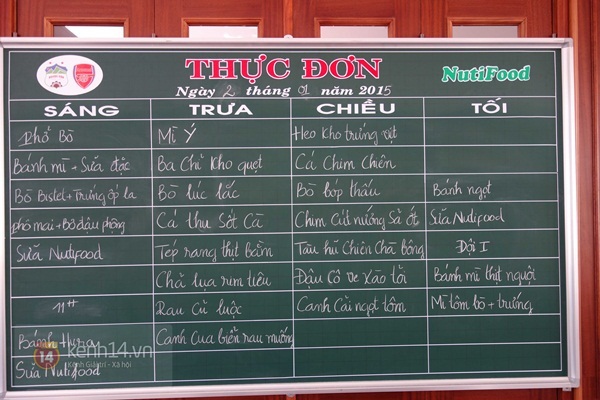 THỰC ĐƠN
NutiFood
Ngày 2 tháng 01 năm 2015
SÁNG TRƯA CHIỀU TỐI
Phở Bò Mì Ý Heo Kho trứng vịt
Bánh mì + Sữa đặc Ba Chỉ Kho quẹt Cá Chim Chiên
Bò Bistel + Trứng ốp la Bò lúc lắc Bò bóp thấu Bánh ngọt
phô mai + Bơ đậu phộng Cá thu Sốt Cà Chim Cút nướng Sả ớt Sữa Nutifood
Sữa Nutifood Tép rang thịt bằm Tàu hũ Chiên Chà bông Đội I
Chả lụa rim tiêu Đậu Cô ve Xào tỏi Bánh mì thịt nguội
11H Rau Củ luộc Canh Cải ngọt tôm Mì tôm bò + trứng
Bánh Hura Canh Cua biển rau muống
Sữa Nutifood
14 kenh14.vn
Kênh Giải trí - Xã hội